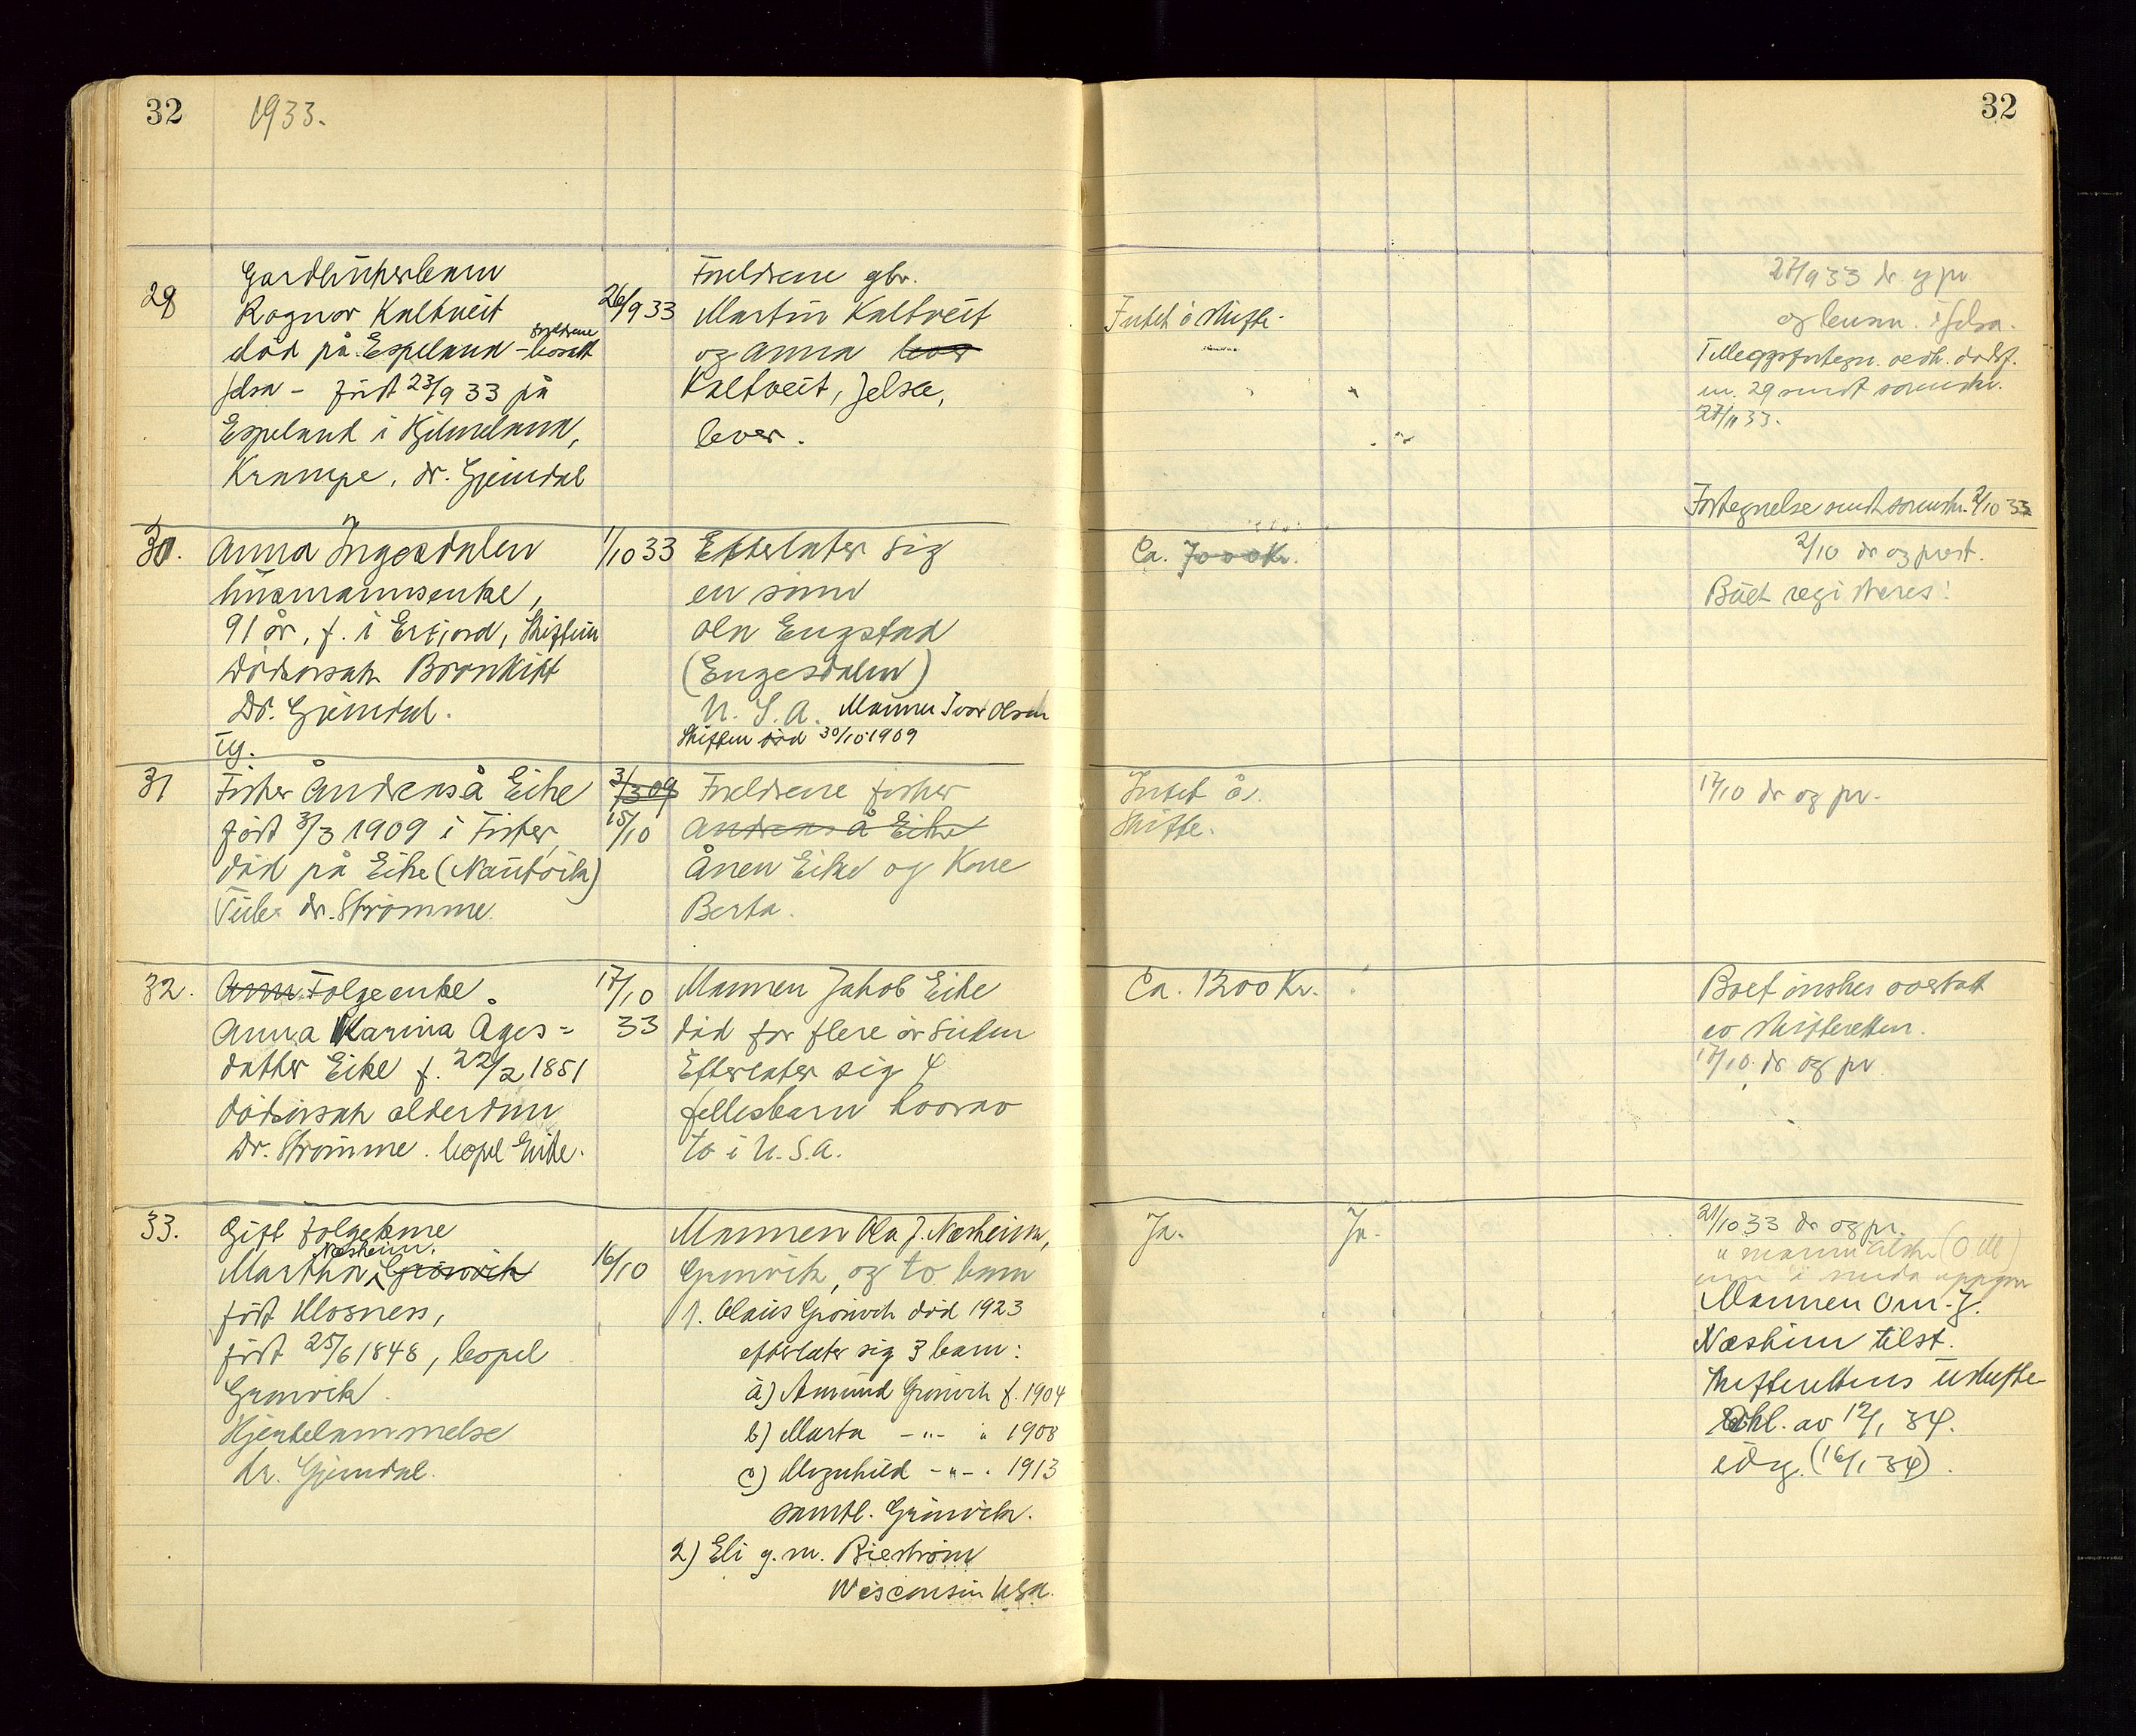 32
1933.
32
29
Gardbrukerbarn
Ragnar Kaltveit
død på Espeland - foreldrene bosatt
Jelsa - født 23/9 33 på
Espeland i Hjelmeland,
Krampe, dr. Gjerndal
26/9 33
Foreldrene gbr.
Martin Kaltveit
og Anna lever
Kaltveit, Jelsa,
lever.
Intet å skifte.
27/9 33 dr og pr
og lensm. i Jelsa.
Tilleggsfortegn. vedk. dødsf.
nr. 29 sendt sorenskr.
27/11 33.
Fortegnelse sendt sorenskr. 2/10 33
30.
Anna Ingesdalen
husmannsenke,
91 år, f. i Erfjord, Skiftun
Dødsårsak Bronkitt
Dr. Gjerndal.
1/10 33
Efterlater sig
en sønn
Ola Engstad
(Engesdalen)
U.S.A. Mannen Ivar Olsen
Skiftun død 30/10 1909
Ca. 7000 Kr.
2/10 dr og prest.
Boet registreres!
31
Ug.
Fisker Andreas Å Eike
født 3/3 1909 i Fister,
død på Eike (Nautvik)
Tub. dr. Strømme.
3/3 09
15/10
Foreldrene fisker
Andreas Å Eike
Ånen Eike og Kone
Berta.
Intet å
skifte.
17/10 dr og pr.
32.
Anna Folgeenke.
Anna Karina Åges=
datter Eike f. 22/2 1851
dødsårsak alderdom
Dr. Strømme. bopel Eike.
17/10
33
Mannen Jakob Eike
død for flere år siden
Efterlater sig 4
fellesbarn hvorav
to i U.S.A.
Ca. 1200 Kr.
Boet ønskes overtatt
av skifteretten.
17/10 dr og pr.
33.
Gift folgekone
Næsheim,
Martha Grønvik
født Mosnes,
født 25/6 1848, bopel
Grønvik.
Hjertelammelse
dr. Gjerndal.
16/10
Mannen Ola J. Næsheim,
Grønvik, og to barn
1. Claus Grønvik død 1923
efterlater sig 3 barn:
a) Amund Grønvik f. 1904
b) Marta -"- " 1908
c) Magnhild -"- " 1913
samtl. Grønvik.
2) Eli g.m. Bieström
Wisconsin USA.
Ja.
Ja.
21/10 33 dr og pr.
Mannen Om. J.
Næsheim tilst.
Skifterettens uskifte
bhl. av 12/1 34.
(16/1 34).